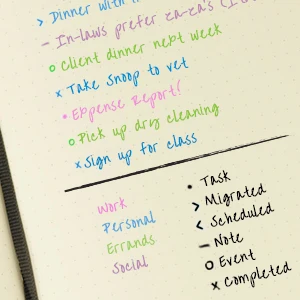 > Dinner with
– In-laws prefer za-za's
o Client dinner next week
x Take Snoop to vet
• Expense Report!
o Pick up dry cleaning
x Sign up for class
Work
Personal
Errands
Social
• Task
> Migrated
< Scheduled
– Note
o Event
x Completed